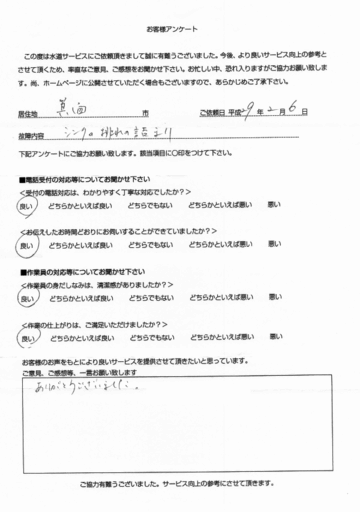 お客様アンケート
この度は水道サービスにご依頼頂きまして誠に有難うございました。今後、より良いサービス向上の参考と
させて頂くため、率直なご意見、ご感想をお聞かせ下さい。お忙しい中、恐れ入りますがご協力お願い致しま
す。尚、ホームページに公開させていただく場合もございますので、あらかじめご了承下さい。
居住地 箕面 市 ご依頼日 平成29年2月6日
故障内容 シンクの排水の詰まり
下記アンケートにご協力お願い致します。該当項目に〇印をつけて下さい。
■電話受付の対応等についてお聞かせ下さい
<受付の電話対応は、わかりやすく丁寧な対応でしたか？>
良い どちらかといえば良い どちらでもない どちらかといえば悪い 悪い
<お伝えしたお時間どおりにお伺いすることができていましたか？>
良い どちらかといえば良い どちらでもない どちらかといえば悪い 悪い
■作業員の対応等についてお聞かせ下さい
<作業員の身だしなみは、清潔感がありましたか？>
良い どちらかといえば良い どちらでもない どちらかといえば悪い 悪い
<作業の仕上がりは、ご満足いただけましたか？>
良い どちらかといえば良い どちらでもない どちらかといえば悪い 悪い
お客様のお声をもとにより良いサービスを提供させて頂きたいと思っています。
ご意見、ご感想等、一言お願い致します
ありがとうございました。
ご協力有難うございました。サービス向上の参考にさせて頂きます。